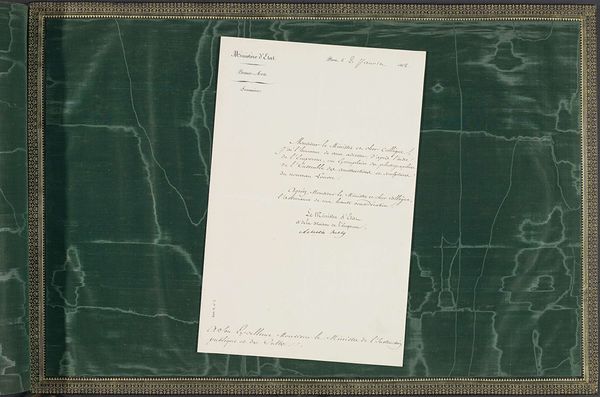 Ministère d'Etat
Beaux-Arts
Paris, le 2 Janvier
Monsieur le Ministre et cher Collègue,
J'ai l'honneur de vous adresser d'après l'ordre
de l'Empereur, un Exemplaire des photographies
de l'Ensemble des constructions et sculptures
du nouveau Louvre.
Agréez, Monsieur le Ministre et cher collègue,
l'assurance de ma haute considération.
Le Ministre d'Etat
et de la Maison de l'Empereur.
A Son Excellence Monsieur le Ministre de l'Instruction
publique et des Cultes.